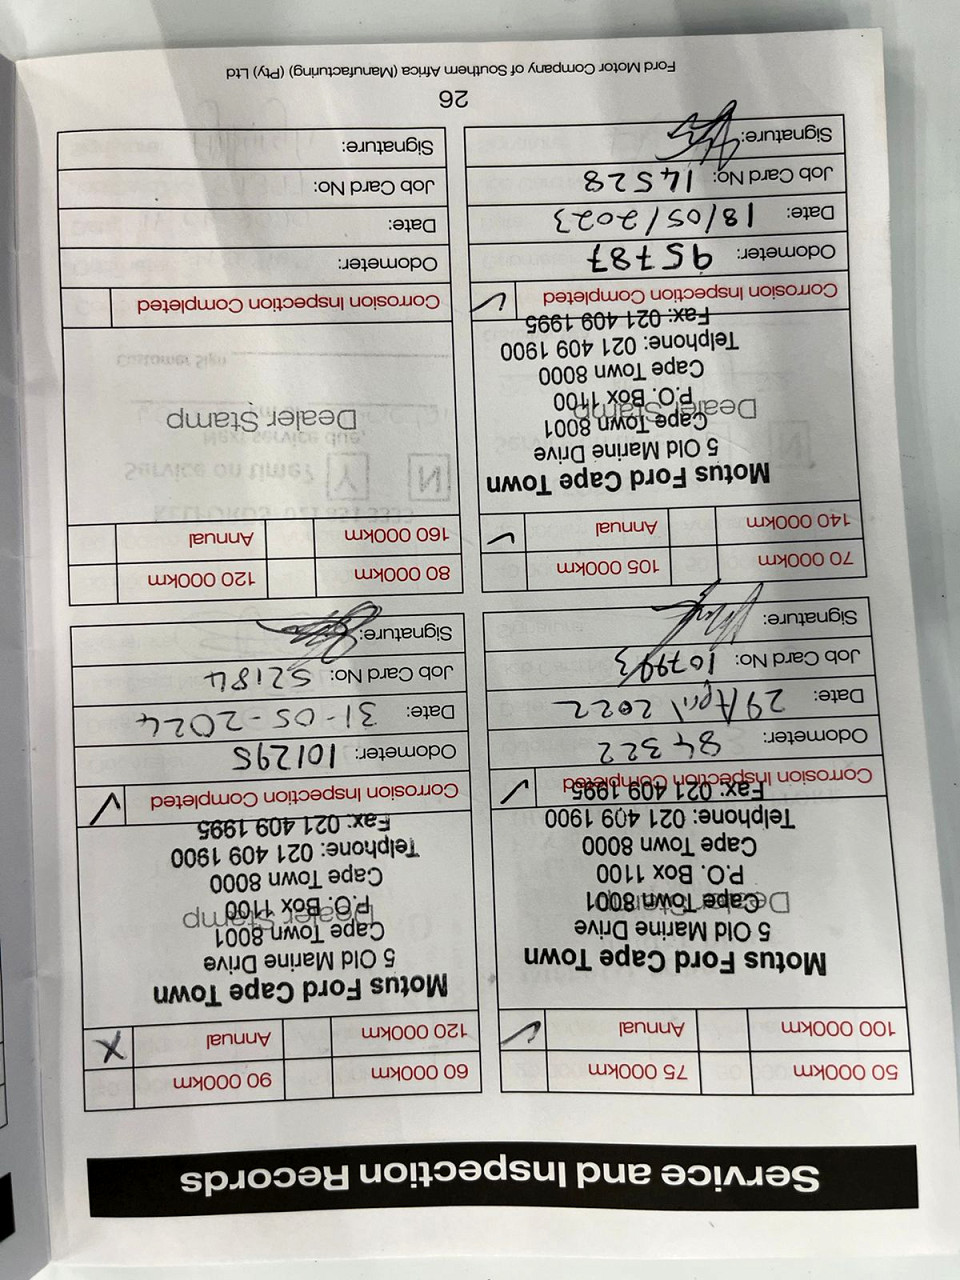 Service and Inspection Records
50 000km 75 000km
100 000km Annual ✓
Motus Ford Cape Town
5 Old Marine Drive
Cape Town 8001
Dealer Stamp
P.O. Box 1100
Cape Town 8000
Telphone: 021 409 1900
Fax: 021 409 1995
Corrosion Inspection Completed ✓
Odometer: 84322
Date: 29 April 2022
Job Card No:
Signature:
60 000km 90 000km
120 000km Annual X
Motus Ford Cape Town
5 Old Marine Drive
Cape Town 8001
Dealer Stamp
P.O. Box 1100
Cape Town 8000
Telphone: 021 409 1900
Fax: 021 409 1995
Corrosion Inspection Completed ✓
Odometer: 101295
Date: 31-05-2024
Job Card No: 52184
Signature:
70 000km 105 000km
140 000km Annual ✓
Motus Ford Cape Town
5 Old Marine Drive
Cape Town 8001
Dealer Stamp
P.O. Box 1100
Cape Town 8000
Telphone: 021 409 1900
Fax: 021 409 1995
Corrosion Inspection Completed ✓
Odometer: 95787
Date: 18/05/2023
Job Card No: 14528
Signature:
80 000km 120 000km
160 000km Annual
Dealer Stamp
Corrosion Inspection Completed
Odometer:
Date:
Job Card No:
Signature:
26
Ford Motor Company of Southern Africa (Manufacturing) (Pty) Ltd